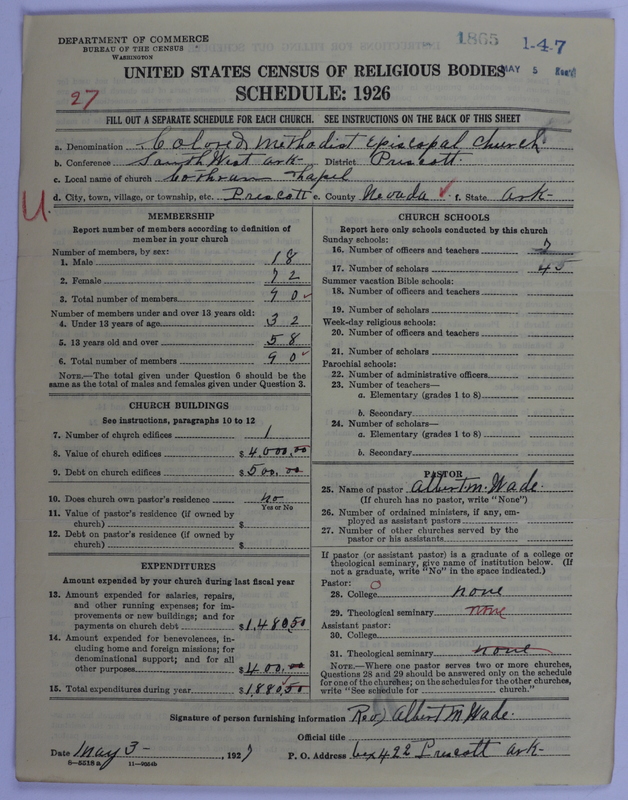 DEPARTMENT OF COMMERCE
BUREAU OF THE CENSUS
WASHINGTON
1865 1-4-7
MAY 5
UNITED STATES CENSUS OF RELIGIOUS BODIES
27
SCHEDULE: 1926
FILL OUT A SEPARATE SCHEDULE FOR EACH CHURCH. SEE INSTRUCTIONS ON THE BACK OF THIS SHEET
a. Denomination Colored Methodist Episcopal Church
b. Conference South West Ark- District Prescott
c. Local name of church Cothran Chapel
U.
d. City, town, village, or township, etc. Prescott e. County Nevada ✓ f. State Ark-
MEMBERSHIP
Report number of members according to definition of
member in your church
Number of members, by sex:
1. Male 18
2. Female 72
3. Total number of members 90 ✓
Number of members under and over 13 years old:
4. Under 13 years of age 32
5. 13 years old and over 58
6. Total number of members 90 ✓
NOTE.—The total given under Question 6 should be the
same as the total of males and females given under Question 3.
CHURCH BUILDINGS
See instructions, paragraphs 10 to 12
7. Number of church edifices 1
8. Value of church edifices $ 4000.00
9. Debt on church edifices $ 500.00
10. Does church own pastor's residence no
Yes or No
11. Value of pastor's residence (if owned by
church) $
12. Debt on pastor's residence (if owned by
church) $
EXPENDITURES
Amount expended by your church during last fiscal year
13. Amount expended for salaries, repairs,
and other running expenses; for im-
provements or new buildings; and for
payments on church debt $ 1,480.50
14. Amount expended for benevolences, in-
cluding home and foreign missions; for
denominational support; and for all
other purposes $ 400.00
15. Total expenditures during year $ 1,880.50
CHURCH SCHOOLS
Report here only schools conducted by this church
Sunday schools:
16. Number of officers and teachers 7
17. Number of scholars 45
Summer vacation Bible schools:
18. Number of officers and teachers
19. Number of scholars
Week-day religious schools:
20. Number of officers and teachers
21. Number of scholars
Parochial schools:
22. Number of administrative officers
23. Number of teachers—
a. Elementary (grades 1 to 8)
b. Secondary
24. Number of scholars—
a. Elementary (grades 1 to 8)
b. Secondary
PASTOR
25. Name of pastor Albert M. Wade
(If church has no pastor, write "None")
26. Number of ordained ministers, if any, em-
ployed as assistant pastors
27. Number of other churches served by the
pastor or his assistants
If pastor (or assistant pastor) is a graduate of a college or
theological seminary, give name of institution below. (If
not a graduate, write "No" in the space indicated.)
Pastor: O
28. College none
29. Theological seminary none
Assistant pastor:
30. College
31. Theological seminary none
NOTE.—Where one pastor serves two or more churches,
Questions 28 and 29 should be answered only on the schedule
for one of the churches; on the schedules for the other churches,
write "See schedule for church."
Signature of person furnishing information Rev. Albert M Wade.
Official title
Date May 3- , 1927 P. O. Address box 422 Prescott Ark-
8—5518 a 11—9564b